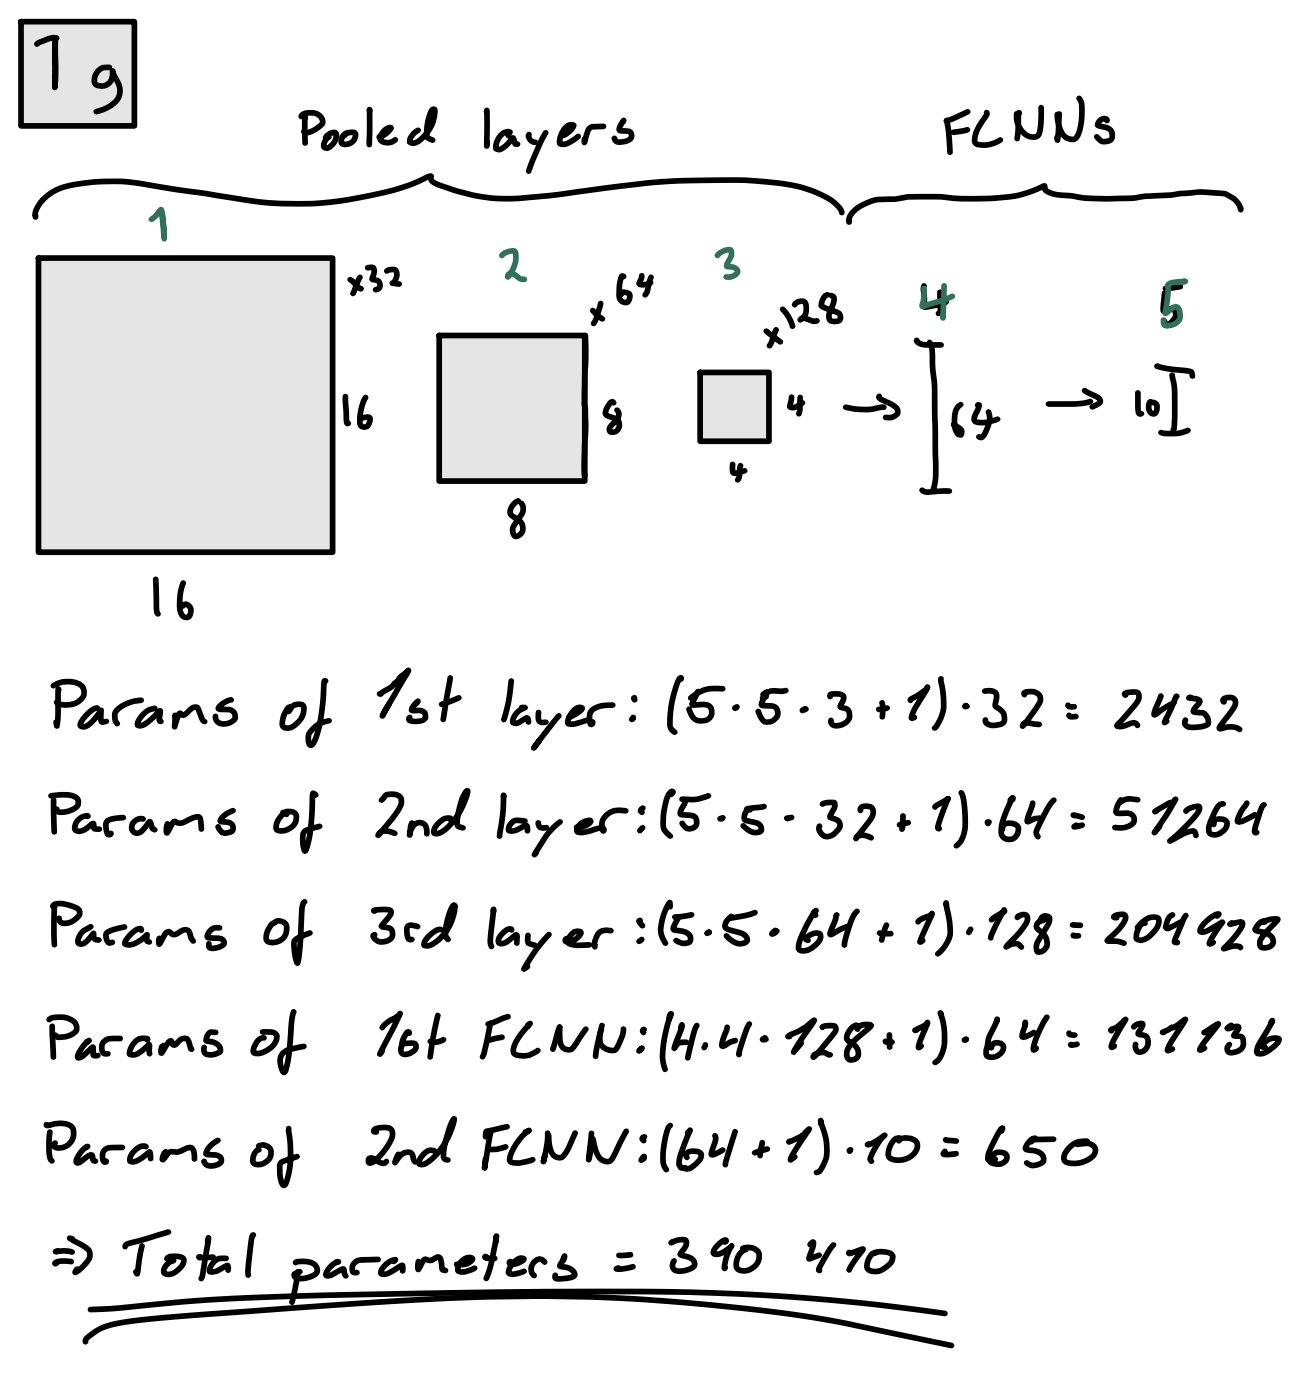 1g
Pooled layers FCNNs
1 2 3 4 5
x32 x64 x128
16 8 4 64 10
16 8 4
Params of 1st layer: (5·5·3+1)·32 = 2432
Params of 2nd layer: (5·5·32+1)·64 = 51264
Params of 3rd layer: (5·5·64+1)·128 = 204928
Params of 1st FCNN: (4·4·128+1)·64 = 131136
Params of 2nd FCNN: (64+1)·10 = 650
⇒ Total parameters = 390 410